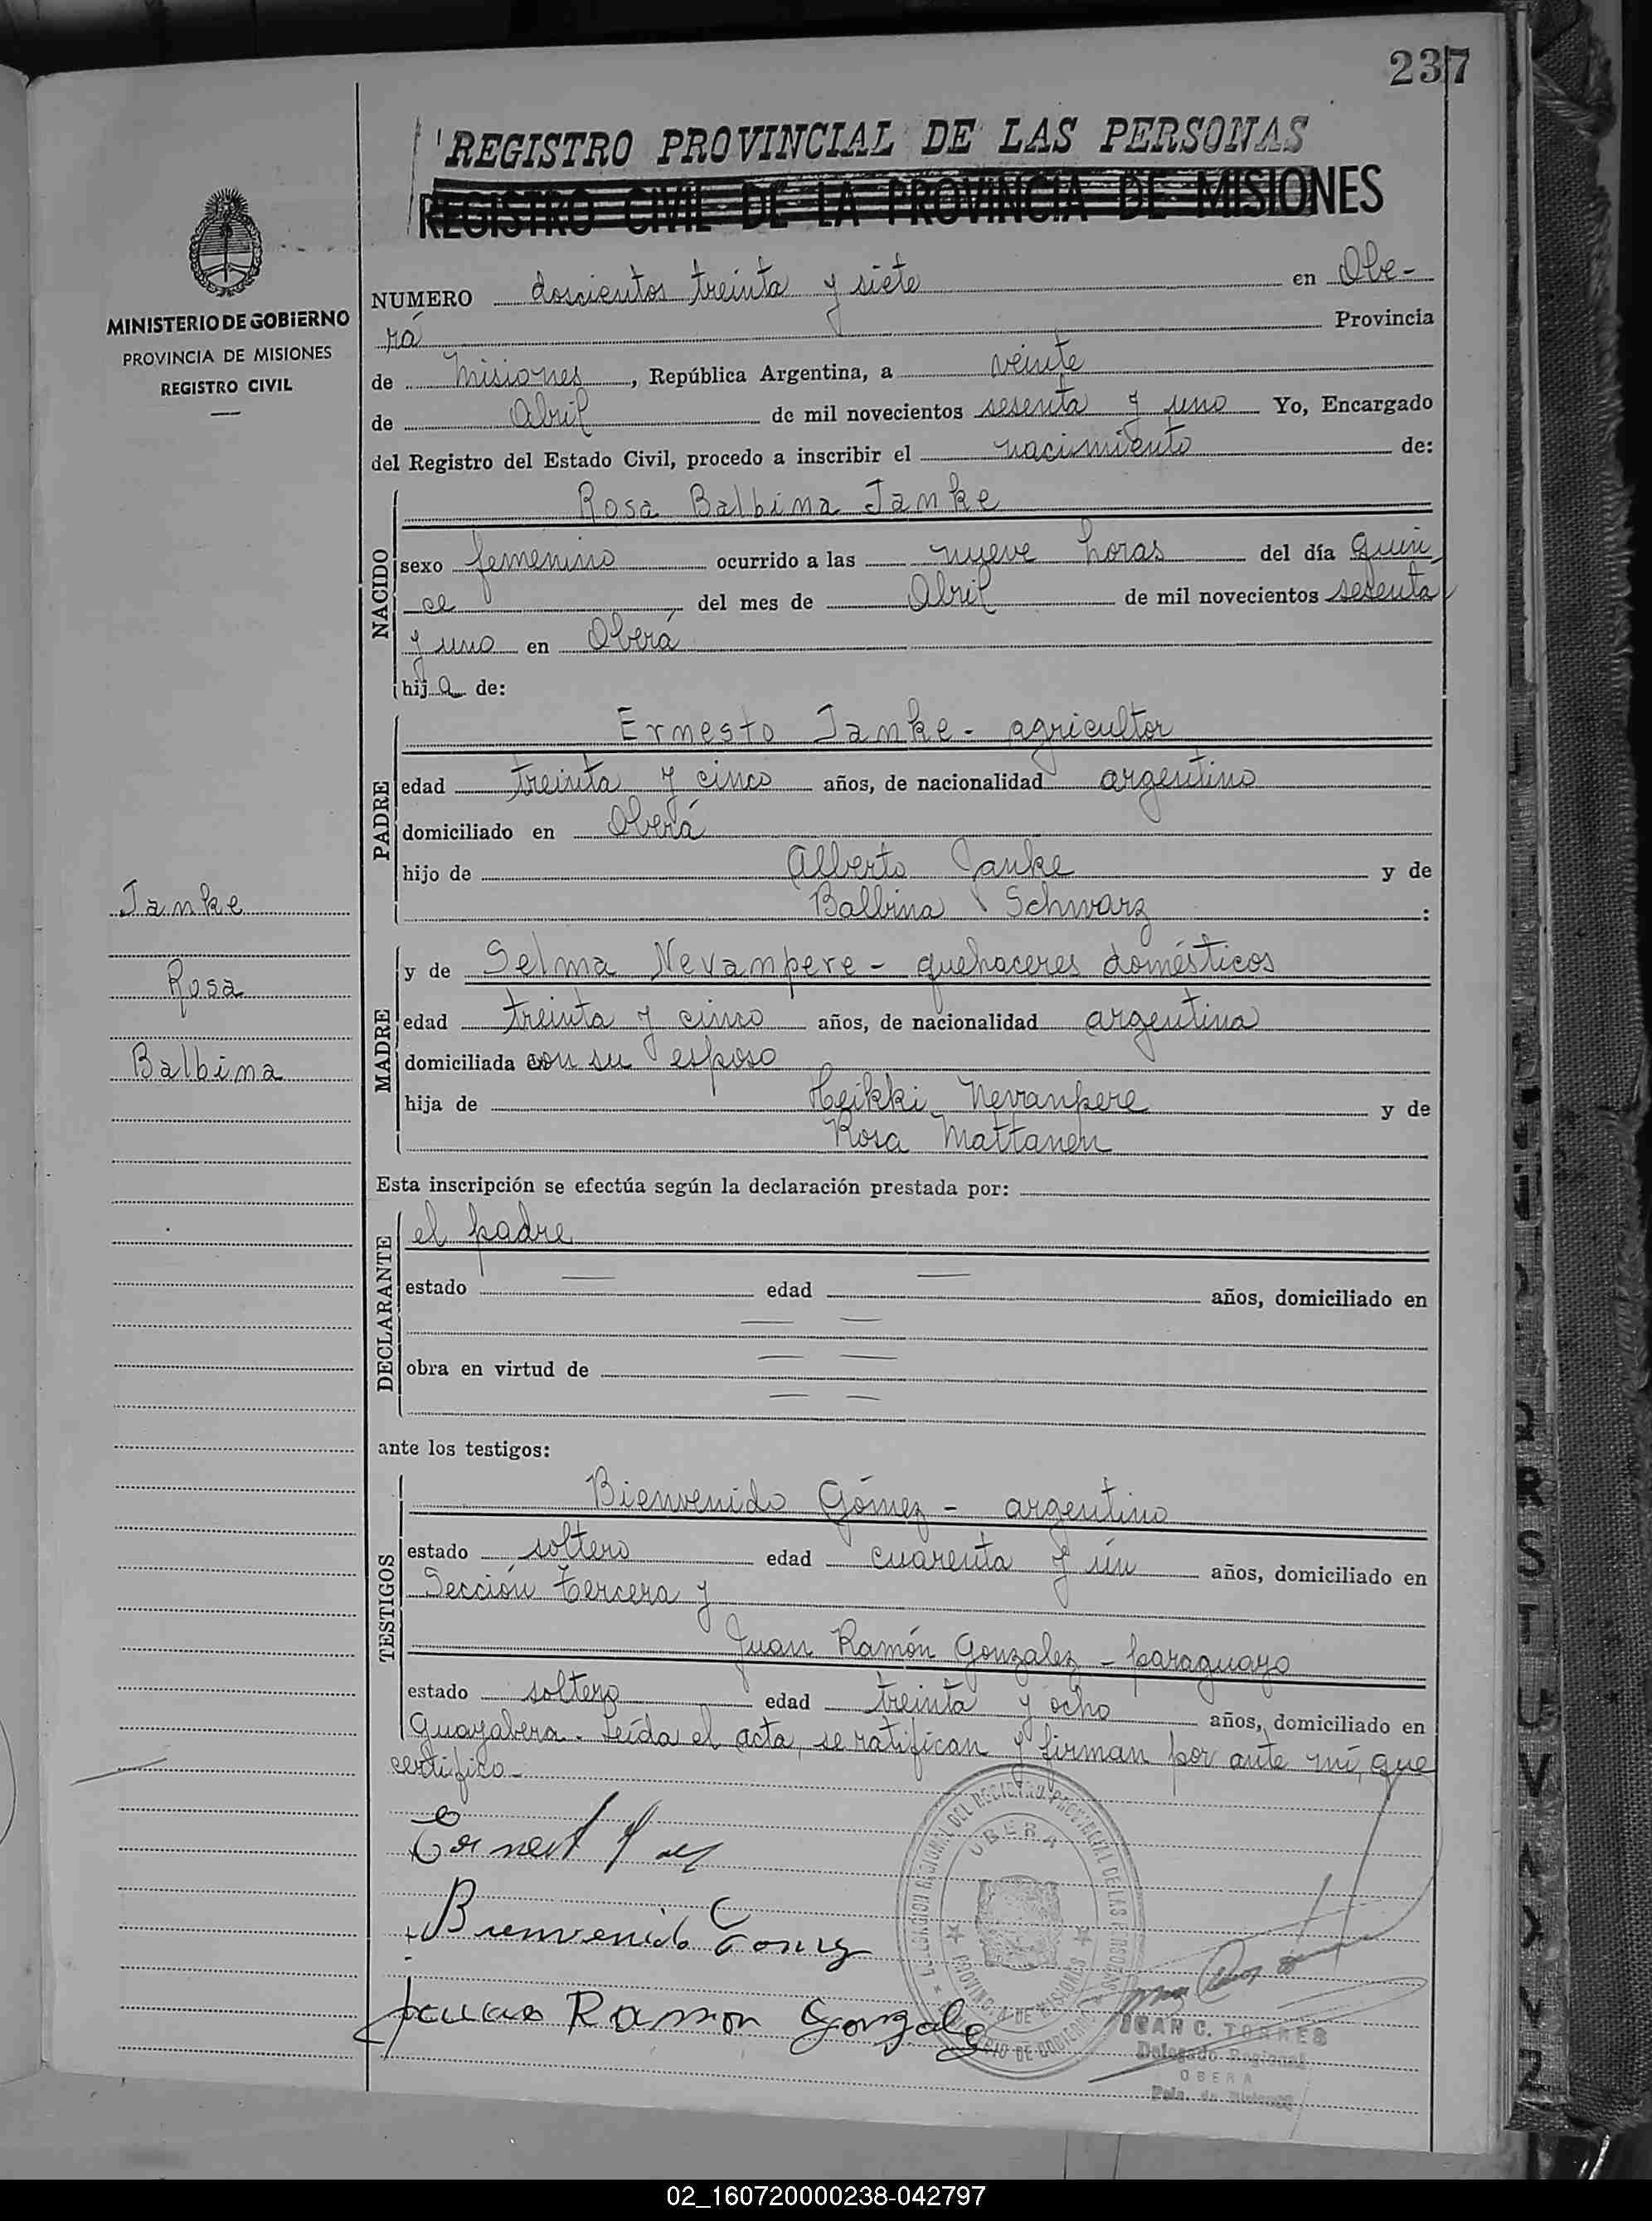 237
REGISTRO PROVINCIAL DE LAS PERSONAS
REGISTRO CIVIL DE LA PROVINCIA DE MISIONES
MINISTERIO DE GOBIERNO
PROVINCIA DE MISIONES
REGISTRO CIVIL
NUMERO doscientos treinta y siete en Obe-
rá Provincia
de Misiones, República Argentina, a veinte
de Abril de mil novecientos sesenta y uno Yo, Encargado
del Registro del Estado Civil, procedo a inscribir el nacimiento de:
NACIDO
Rosa Balbina Janke
sexo femenino ocurrido a las nueve horas del día quin
ce del mes de Abril de mil novecientos sesenta
y uno en Oberá
hija de:
PADRE
Ernesto Janke - agricultor
edad treinta y cinco años, de nacionalidad argentino
domiciliado en Oberá
hijo de Alberto Janke y de
Balbina Schwarz :
Janke
Rosa
Balbina
MADRE
y de Selma Nevanpere - quehaceres domésticos
edad treinta y cinco años, de nacionalidad argentina
domiciliada con su esposo
hija de Heikki Nevanpere y de
Rosa Mattanen
Esta inscripción se efectúa según la declaración prestada por:
DECLARANTE
el padre
estado edad años, domiciliado en
obra en virtud de
ante los testigos:
TESTIGOS
Bienvenido Gómez - argentino
estado soltero edad cuarenta y un años, domiciliado en
Sección tercera y
Juan Ramón Gonzalez - paraguayo
estado soltero edad treinta y ocho años, domiciliado en
Guayabera. Leída el acta, se ratifican y firman por ante mí, que
certifico-
Bienvenido Gomez
Ramon Gonzale
OBERA
PROVINCIA DE MISIONES
JUAN C. TORRES
Delegado Regional
OBERA
Pcia. de Misiones
R
S
T
U
V
02_160720000238-042797